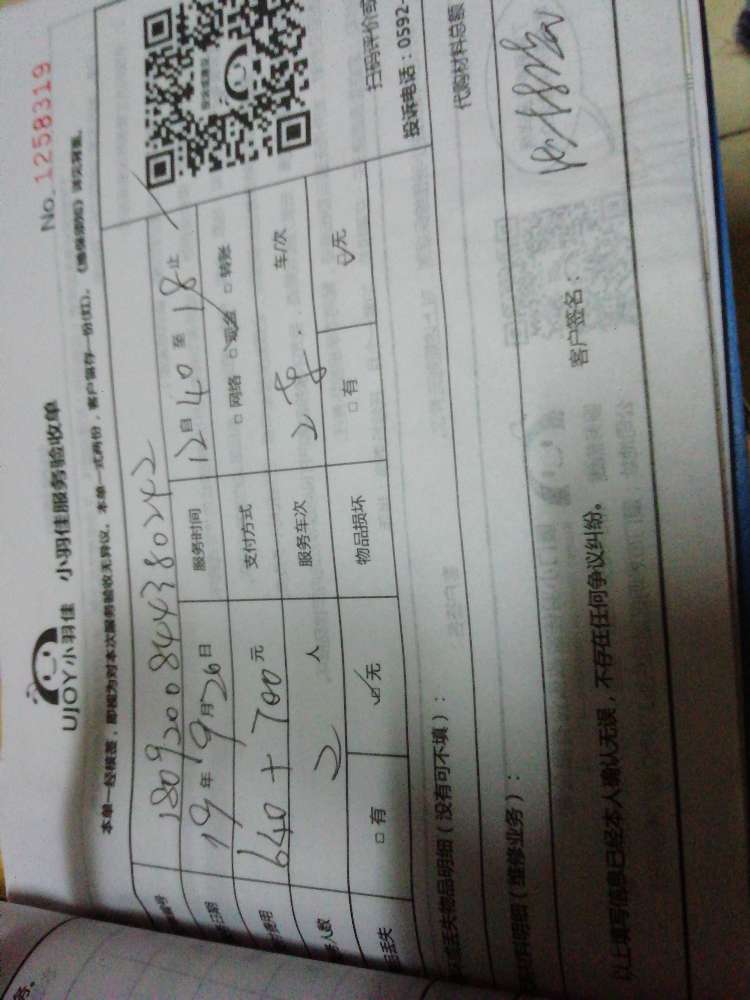 No. 1258319
UJOY小羽佳 小羽佳服务验收单
本单一经核签，即视为对本次服务验收无异议。本单一式两份，客户留存一份(红)。
编号 180920084438024 2
日期 19 年 9 月 26 日 服务时间 12 自 40 至 18 止
费用 640 + 700 元 支付方式 □ 网络 □ 现金 □ 转账
人数 2 人 服务车次 2 车/次
品丢失 □ 有 ☑ 无 物品损坏 □ 有 ☑ 无
扫码评价或
投诉电话：0592-
或丢失物品明细（没有可不填）：
材料明细（维修业务）：
代购材料总额
以上填写信息已经本人确认无误，不存在任何争议纠纷。
客户签名：
务。